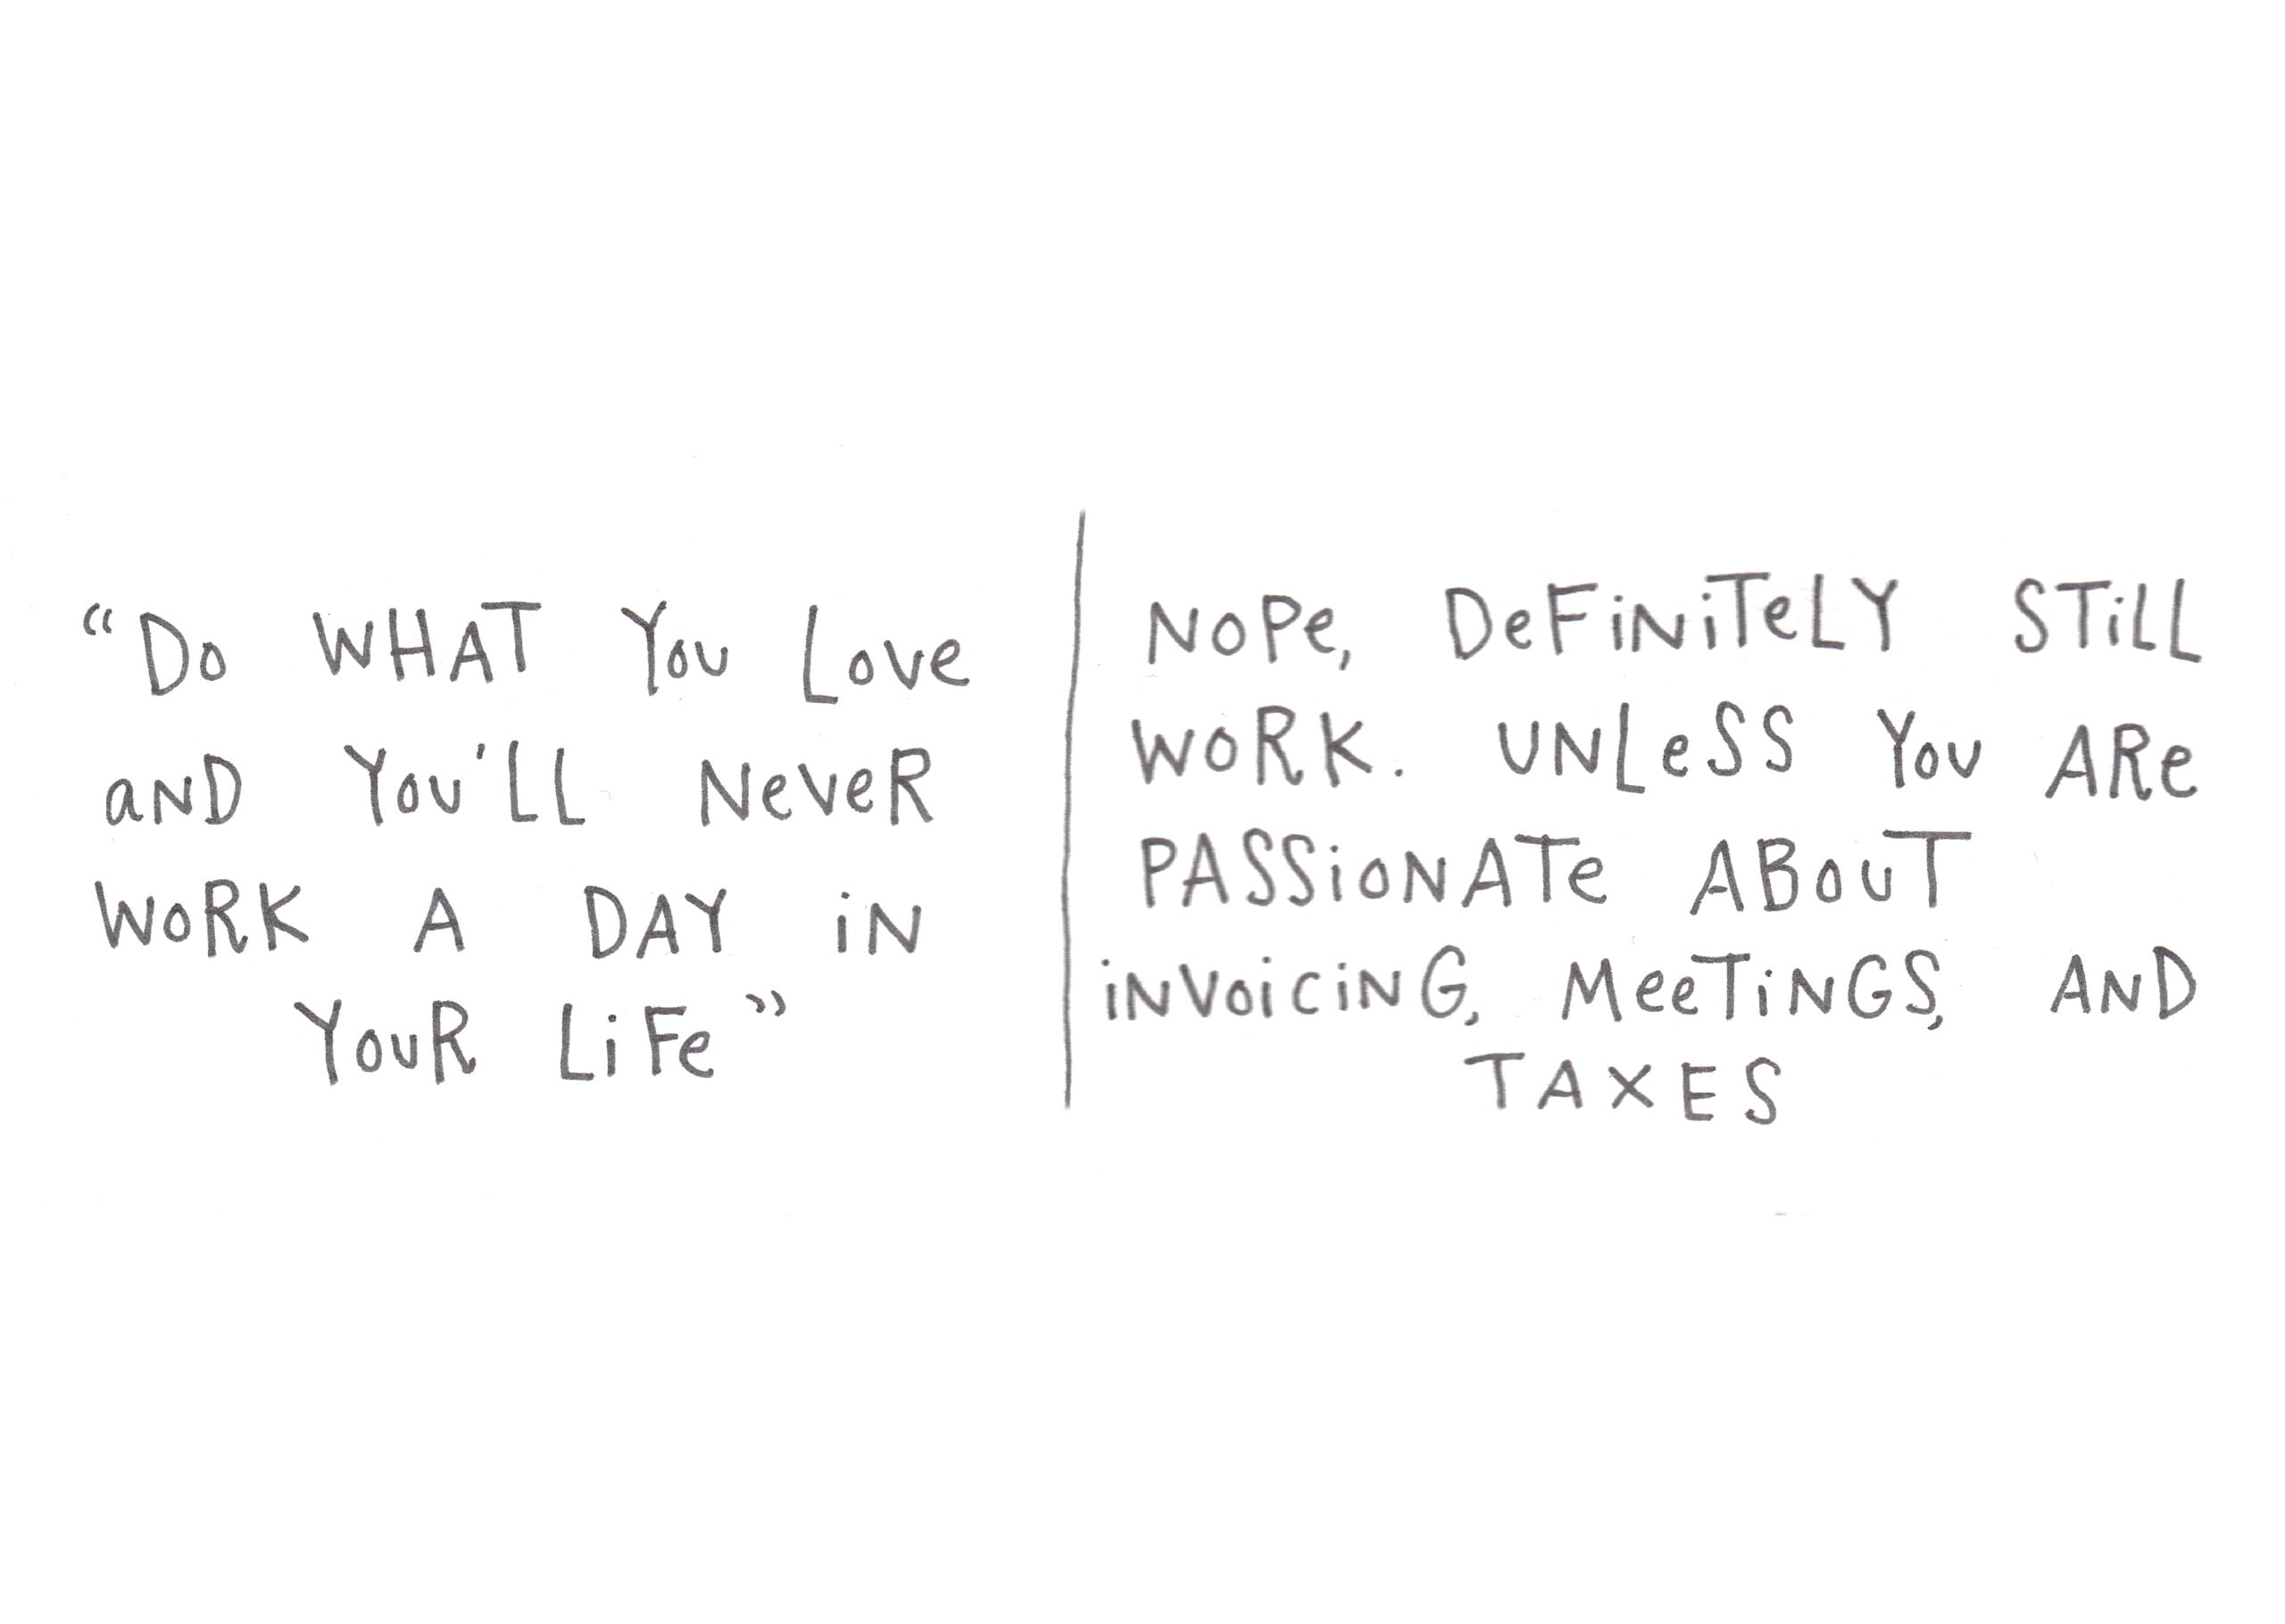 “Do WHAT You Love
aND You'LL NeveR
WoRK A DAY iN
YouR LiFe”
NoPe, DeFiNiTeLY STiLL
WoRK. UNLeSS You ARe
PASSioNATe ABouT
iNVoiciNG, MeeTiNGS, AND
TAXES